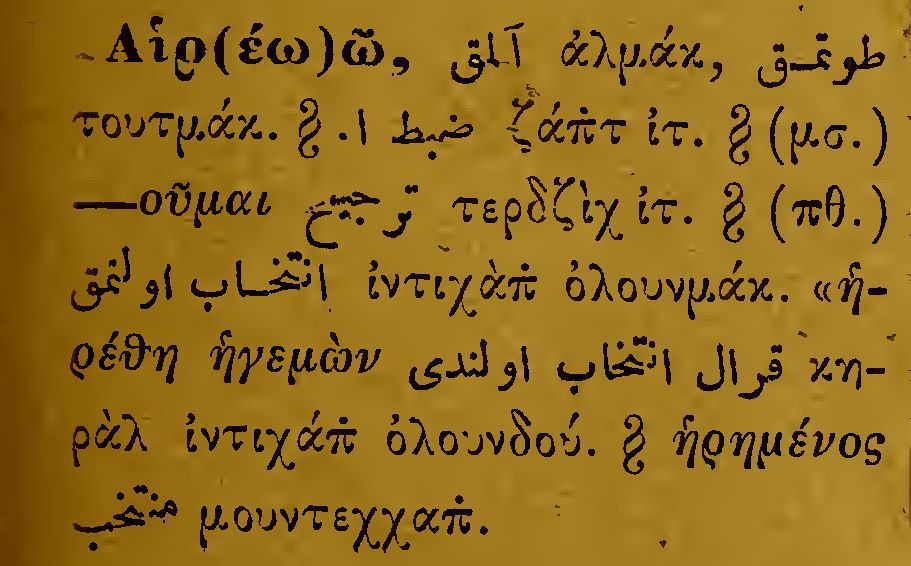 Αἱρ(έω)ῶ, آلمق ἀλμάκ, طوتمـق
τουτμάκ. ⸹ ضبط ا. ζάπ̇τ ἰτ. ⸹ (μσ.)
—οῦμαι ترجیح τερδζὶχ ἰτ. ⸹ (πθ.)
انتخـاب اولنمق ἰντιχὰπ̇ ὀλουνμάκ. «ᾑ-
ρέθη ἡγεμὼν قرال انتخاب اولندی κη-
ρὰλ ἰντιχάπ̇ ὀλουνδού. ⸹ ᾑρημένος
منتخب μουντεχχαπ̇.